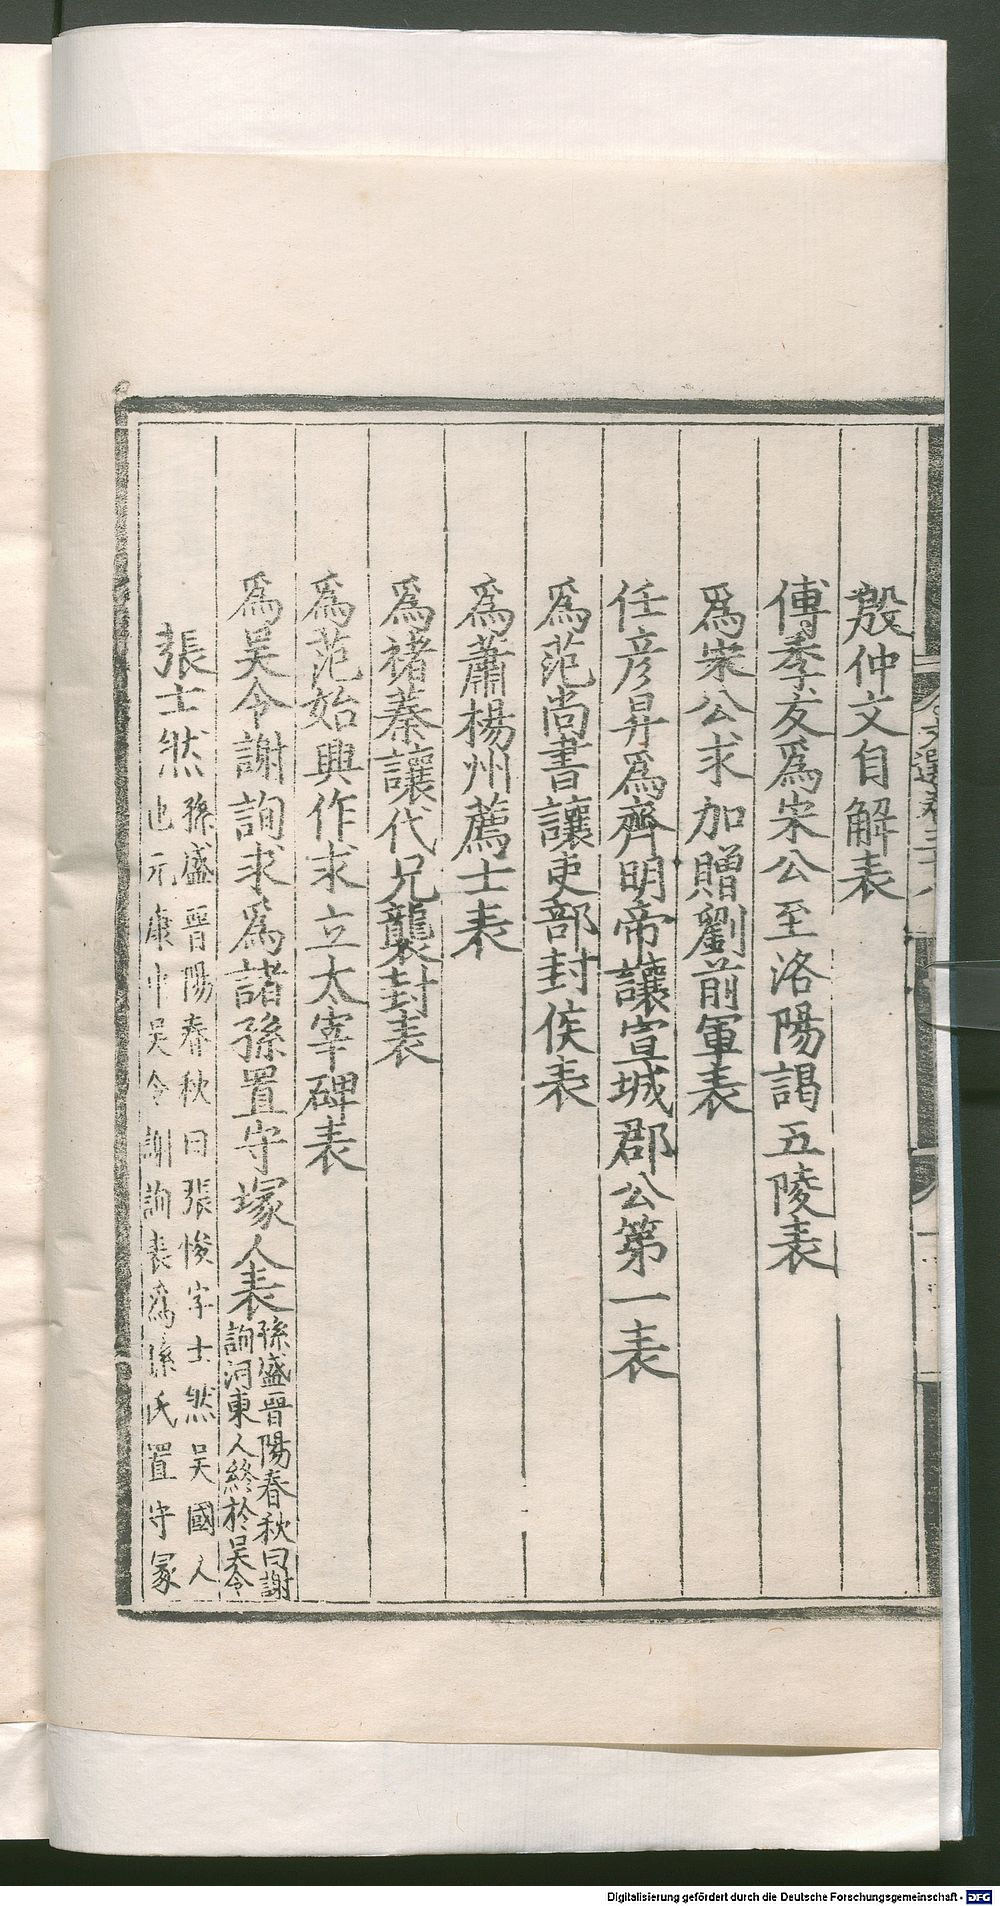 殷仲文自解表
傅季友爲宋公至洛陽謁五陵表
爲宋公求加贈劉前軍表
任彦昇爲齊明帝讓宣城郡公第一表
爲范尚書讓吏部封侯表
爲蕭楊州薦士表
爲褚蓁讓代兄襲封表
爲范始興作求立太宰碑表
爲吴令謝詢求爲諸孫置守塚人表孫盛晉陽春秋曰謝詢河東人終於吴令
張士然孫盛晉陽春秋曰張悛字士然吴國人也元康中吴令謝詢表爲孫氏置守冢
Digitalisierung gefördert durch die Deutsche Forschungsgemeinschaft - DFG